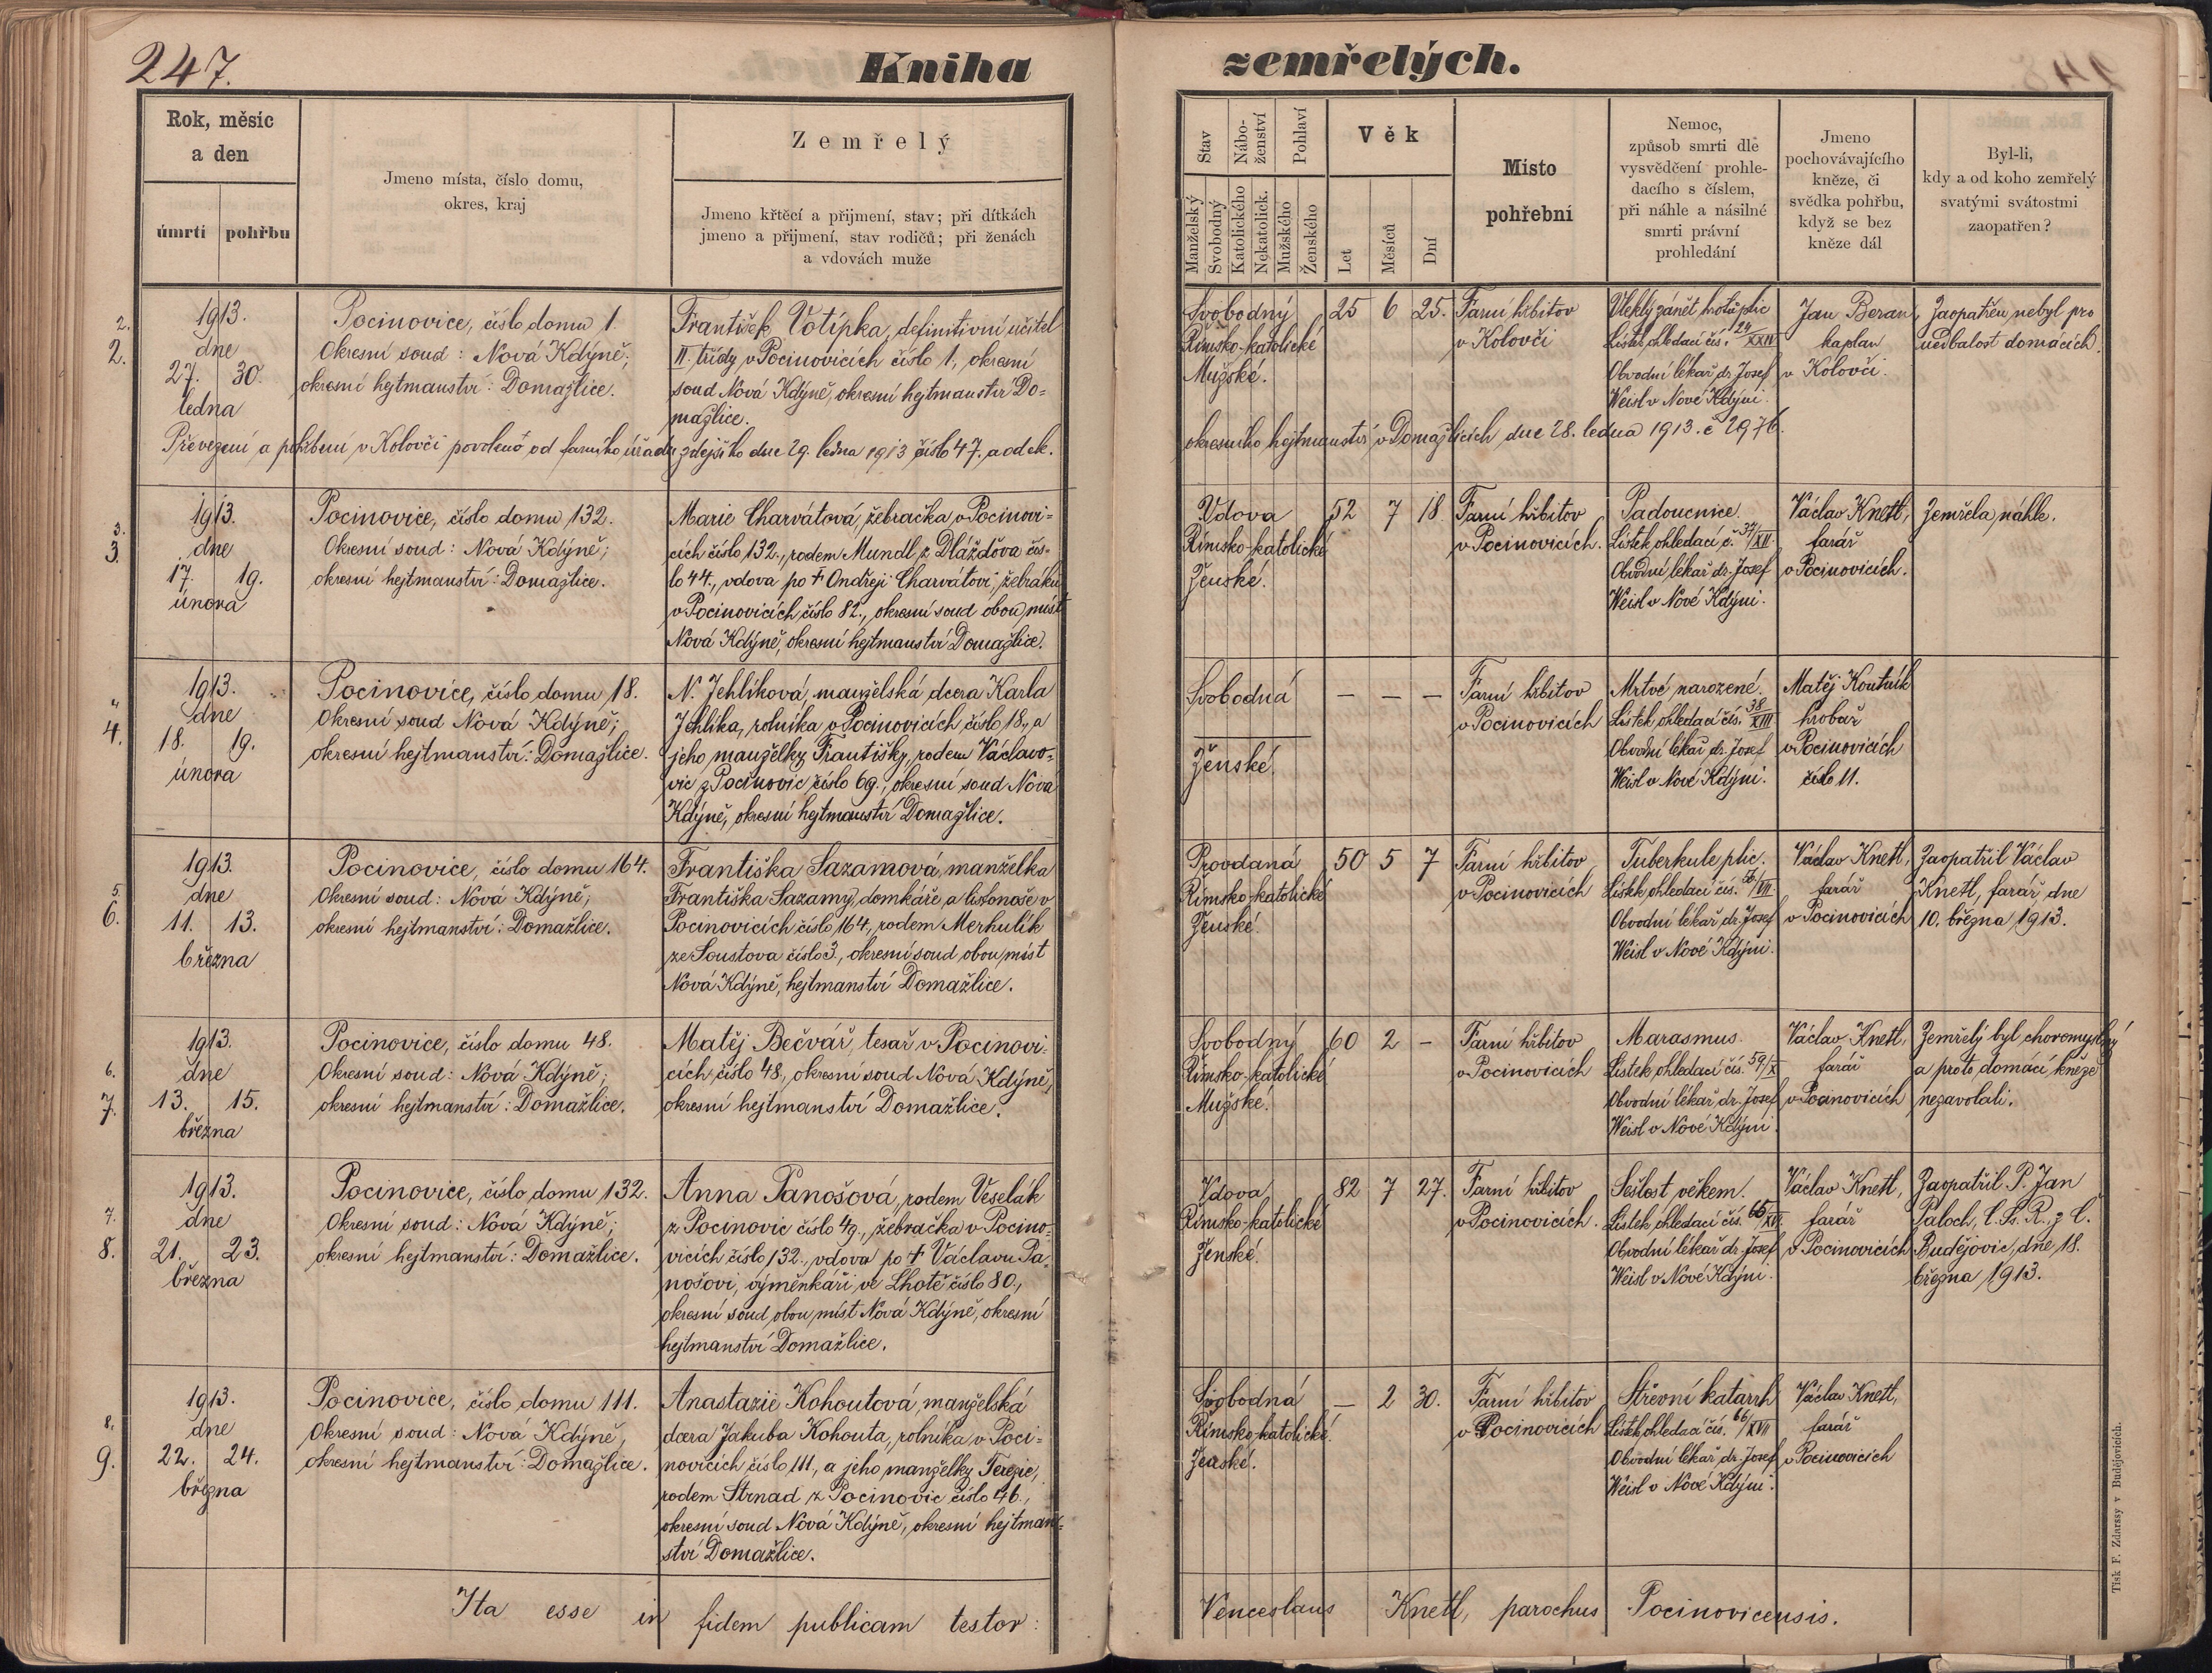 247.
Kniha zemřelých.
Rok, měsíc
a den
úmrtí
pohřbu
Jmeno místa, číslo domu,
okres, kraj
Zemřelý
Jmeno křtěcí a přijmení, stav; při dítkách
jmeno a přijmení, stav rodičů; při ženách
a vdovách muže
Stav
Nábo-
ženství
Pohlaví
Manželský
Svobodný
Katolického
Nekatolick.
Mužského
Ženského
Věk
Let
Měsíců
Dní
Místo
pohřební
Nemoc,
způsob smrti dle
vysvědčení prohle-
dacího s číslem,
při náhle a násilné
smrti právní
prohledání
Jmeno
pochovávajícího
kněze, či
svědka pohřbu,
když se bez
kněze dál
Byl-li,
kdy a od koho zemřelý
svatými svátostmi
zaopatřen?
2.
2.
1913.
dne
27. 30.
ledna
Pocinovice, číslo domu 1.
Okresní soud: Nová Kdýně;
okresní hejtmanství: Domažlice.
František Votípka, definitivní učitel
II. třídy v Pocinovicích číslo 1, okresní
soud Nová Kdýně, okresní hejtmanství Do-
mažlice.
Svobodný
Římsko-katolické
Mužské.
25 6 25.
Farní hřbitov
v Kolovči
Vleklý zánět hrotů plic
Lístek ohledací čís. 24/XXIV
Obvodní lékař dr. Josef
Weisl v Nové Kdýni.
Jan Beran,
kaplan
v Kolovči.
Zaopatřen nebyl pro
nedbalost domácích.
Převezení a pohřbení v Kolovči povoleno od farního úřadu zdejšího dne 29. ledna 1913 číslo 47. a od ck.
okresního hejtmanství v Domažlicích dne 28. ledna 1913. č 2976.
3.
3.
1913.
dne
17. 19.
února
Pocinovice, číslo domu 132.
Okresní soud: Nová Kdýně;
okresní hejtmanství: Domažlice.
Marie Charvátová, žebračka v Pocinovi-
cích číslo 132., rodem Mundl z Dláždova čís-
lo 44., vdova po † Ondřeji Charvátovi, žebráku
v Pocinovicích číslo 82., okresní soud obou míst
Nová Kdýně, okresní hejtmanství Domažlice.
Vdova
Římsko-katolické
Ženské.
52 7 18
Farní hřbitov
v Pocinovicích.
Padoucnice.
Lístek ohledací č. 37/XII
Obvodní lékař dr. Josef
Weisl v Nové Kdýni.
Václav Knetl,
farář
v Pocinovicích.
Zemřela náhle.
4.
4.
1913.
dne
18. 19.
února
Pocinovice, číslo domu 18.
Okresní soud Nová Kdýně;
okresní hejtmanství: Domažlice.
N. Jehlíková, manželská dcera Karla
Jehlíka, rolníka v Pocinovicích číslo 18., a
jeho manželky Františky, rodem Václavo-
vic z Pocinovic číslo 69., okresní soud Nová
Kdýně, okresní hejtmanství Domažlice.
Svobodná
Ženské.
— — —
Farní hřbitov
v Pocinovicích
Mrtvé narozené.
Lístek ohledací čís. 38/XIII
Obvodní lékař dr. Josef
Weisl v Nové Kdýni.
Matěj Koutník
hrobař
v Pocinovicích
číslo 11.
5.
6.
1913.
dne
11. 13.
března
Pocinovice, číslo domu 164.
Okresní soud: Nová Kdýně;
okresní hejtmanství: Domažlice.
Františka Sazamová, manželka
Františka Sazamy, domkáře a listonoše v
Pocinovicích číslo 164., rodem Merhulík
ze Soustova číslo 3., okresní soud obou míst
Nová Kdýně, hejtmanství Domažlice.
Provdaná
Římsko-katolické
Ženské.
50 5 7
Farní hřbitov
v Pocinovicích
Tuberkule plic.
Lístek ohledací čís. 56/VII
Obvodní lékař dr. Josef
Weisl v Nové Kdýni.
Václav Knetl,
farář
v Pocinovicích
Zaopatřil Václav
Knetl, farář, dne
10. března 1913.
6.
7.
1913.
dne
13. 15.
března
Pocinovice, číslo domu 48.
Okresní soud: Nová Kdýně;
okresní hejtmanství: Domažlice.
Matěj Bečvář, tesař v Pocinovi-
cích číslo 48., okresní soud Nová Kdýně,
okresní hejtmanství Domažlice.
Svobodný
Římsko-katolické
Mužské.
60 2 —
Farní hřbitov
v Pocinovicích
Marasmus.
Lístek ohledací čís. 59/X
Obvodní lékař dr. Josef
Weisl v Nové Kdýni.
Václav Knetl,
farář
v Pocinovicích
Zemřelý byl choromyslný
a proto domácí kněze
nezavolali.
7.
8.
1913.
dne
21. 23.
března
Pocinovice, číslo domu 132.
Okresní soud: Nová Kdýně;
okresní hejtmanství: Domažlice.
Anna Panošová, rodem Veselák
z Pocinovic číslo 49., žebračka v Pocino-
vicích číslo 132., vdova po † Václavu Pa-
nošovi, výměnkáři ve Lhotě číslo 80.,
okresní soud obou míst Nová Kdýně, okresní
hejtmanství Domažlice.
Vdova
Římsko-katolické
Ženské.
82 7 27.
Farní hřbitov
v Pocinovicích.
Sešlost věkem.
Lístek ohledací čís. 65/XV.
Obvodní lékař dr. Josef
Weisl v Nové Kdýni.
Václav Knetl,
farář
v Pocinovicích
Zaopatřil P. Jan
Paloch, C. Ss. R. z Č.
Budějovic, dne 18.
března 1913.
8.
9.
1913.
dne
22. 24.
března
Pocinovice, číslo domu 111.
Okresní soud: Nová Kdýně,
okresní hejtmanství: Domažlice.
Anastazie Kohoutová, manželská
dcera Jakuba Kohouta, rolníka v Poci-
novicích číslo 111., a jeho manželky Terezie,
rodem Strnad z Pocinovic číslo 46.,
okresní soud Nová Kdýně, okresní hejtman-
ství Domažlice.
Svobodná
Římsko-katolické.
Ženské.
— 2 30.
Farní hřbitov
v Pocinovicích
Střevní katarrh
Lístek ohledací čís. 66/XVII
Obvodní lékař dr. Josef
Weisl v Nové Kdýni.
Václav Knetl,
farář
v Pocinovicích
Ita esse in fidem publicam testor: Venceslaus Knetl, parochus Pocinovicensis.
Tisk F. Zdarssy v Budějovicích.